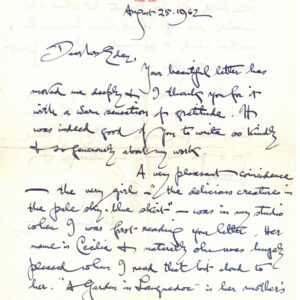 August 25. 1962
Dear Mrs Eday,
Your beautiful letter has
moved me deeply & I thank you for it
with a warm sensation of gratitude. It
was indeed good of you to write so kindly
& so generously about my work.
A very pleasant coincidence
— the very girl — "the delicious creature in
the pale sky-blue skirt" — was in my studio
when I was first reading you letter. Her
name is Cecilia & naturally she was hugely
pleased when I read that bit aloud to
her. "A Garden in Languedoc" is her mother's